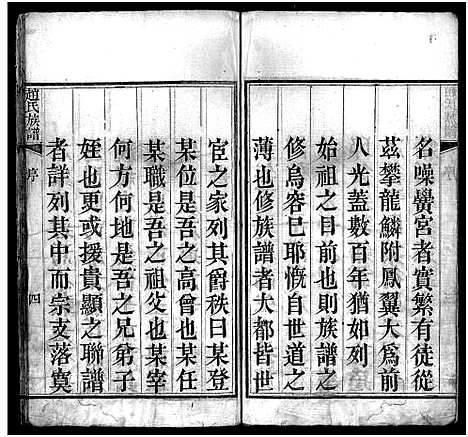 名噪黌宮者實繁有徒從
茲攀龍鱗附鳳翼大為前
人光蓋數百年猶如列
始祖之目前也則族譜之
修烏容已耶慨自世道之
薄也修族譜者大都皆世
宦之家列其爵秩曰某登
某位是吾之高曾也某任
某職是吾之祖父也某宰
何方何地是吾之兄弟子
姪也更或援貴顯之聯譜
者詳列其中而宗支落寞
趙氏族譜
序
四